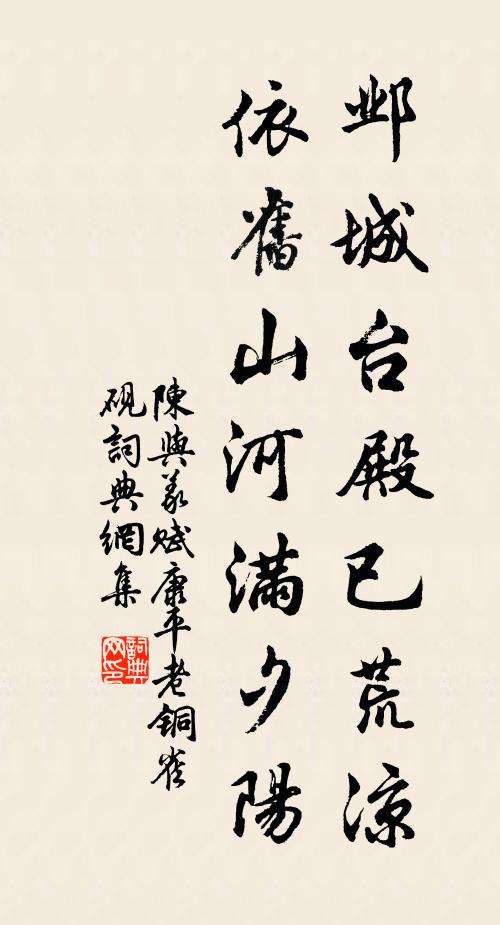 邺城台殿已荒凉
依舊山河満夕陽
陳與義賦康平老銅雀
硯詞典網集
詞典
网印